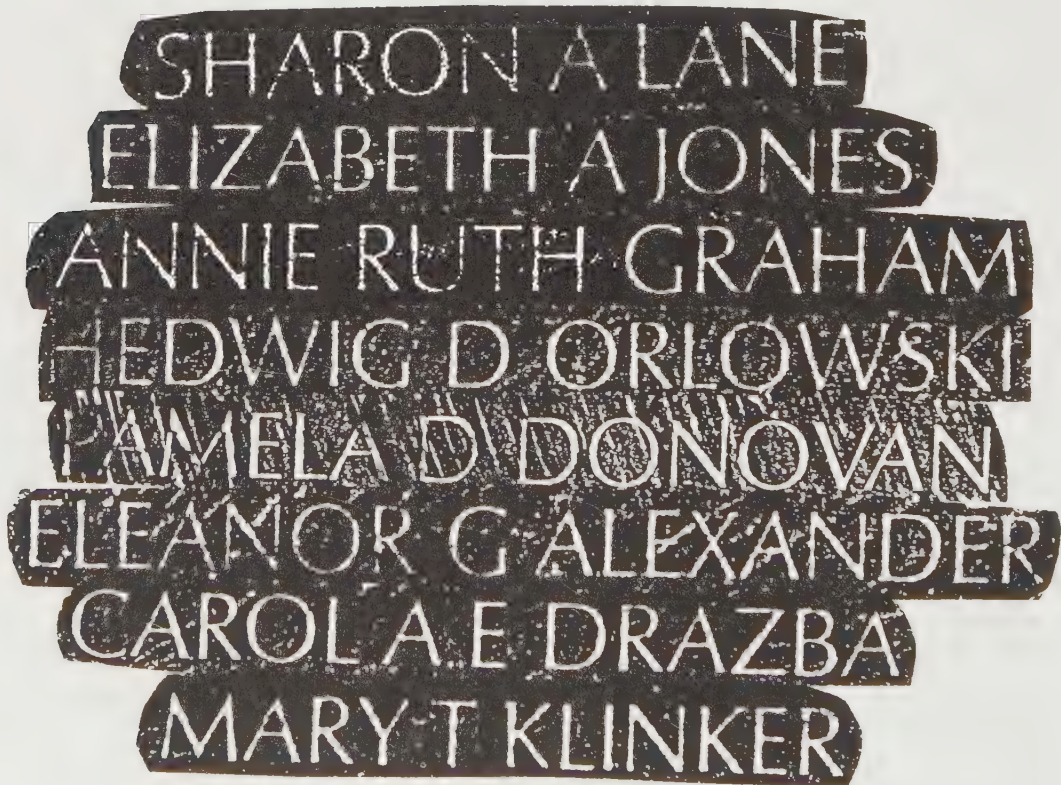 SHARON A LANE
ELIZABETH A JONES
ANNIE RUTH GRAHAM
HEDWIG D ORLOWSKI
PAMELA D DONOVAN
ELEANOR G ALEXANDER
CAROL A E DRAZBA
MARY T KLINKER